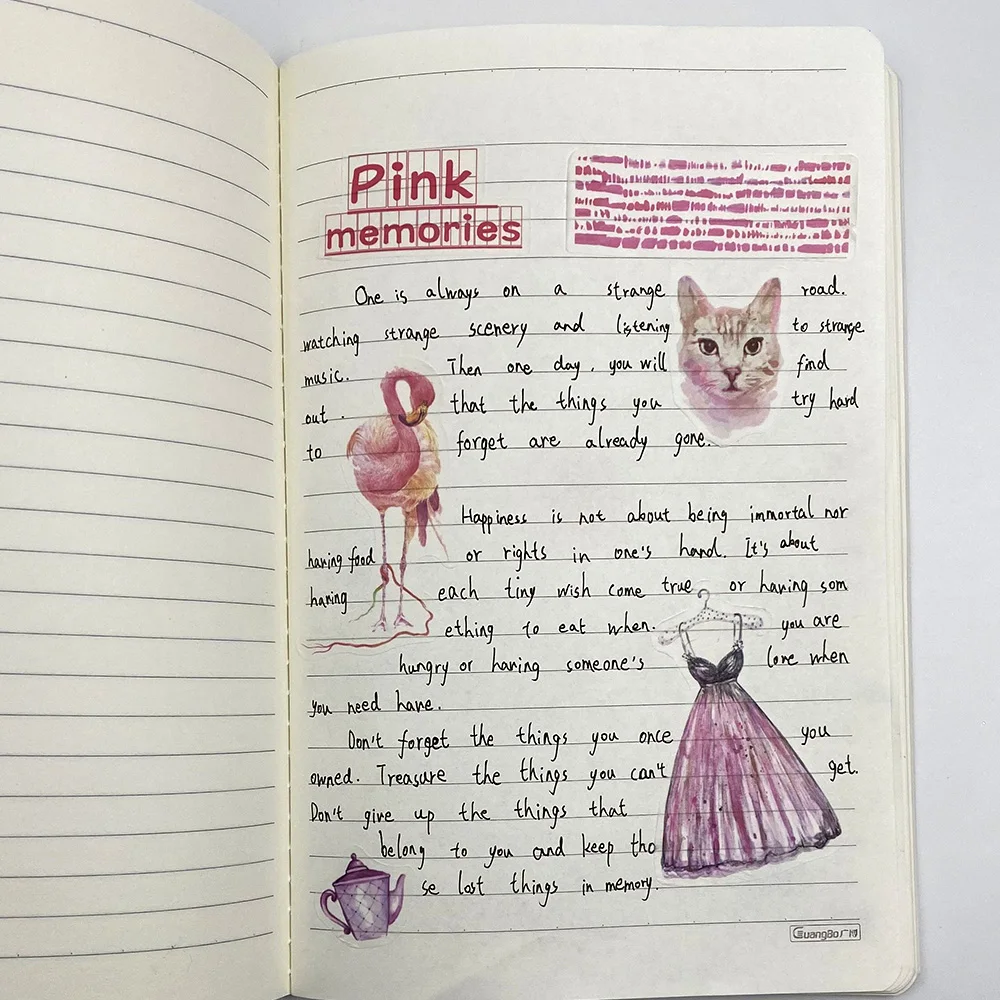 Pink
memories
One is always on a strange road.
watching strange scenery and listening to strange
music. Then one day, you will find
out. that the things you try hard
to forget are already gone.
Happiness is not about being immortal nor
having food or rights in one's hand. It's about
having each tiny wish come true or having som
ething to eat when. you are
hungry or having someone's love when
you need have.
Don't forget the things you once you
owned. Treasure the things you can't get.
Don't give up the things that
belong to you and keep tho
se lost things in memory.
GuangBo广博